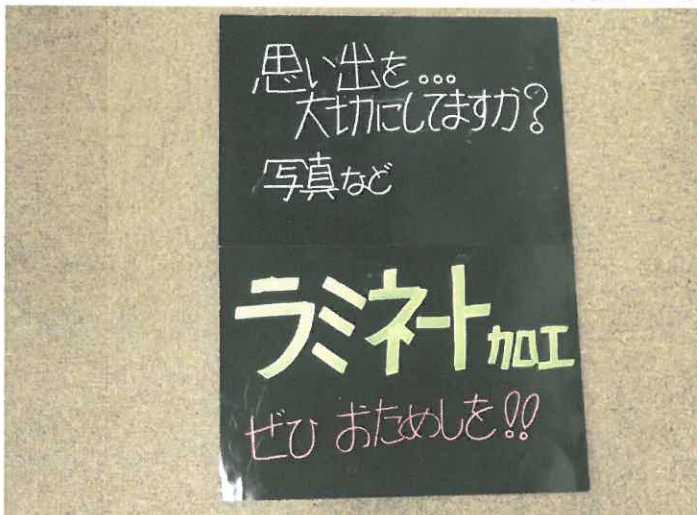 思い出を...
大切にしてますか?
写真など
ラミネート加工
ぜひ おためしを!!